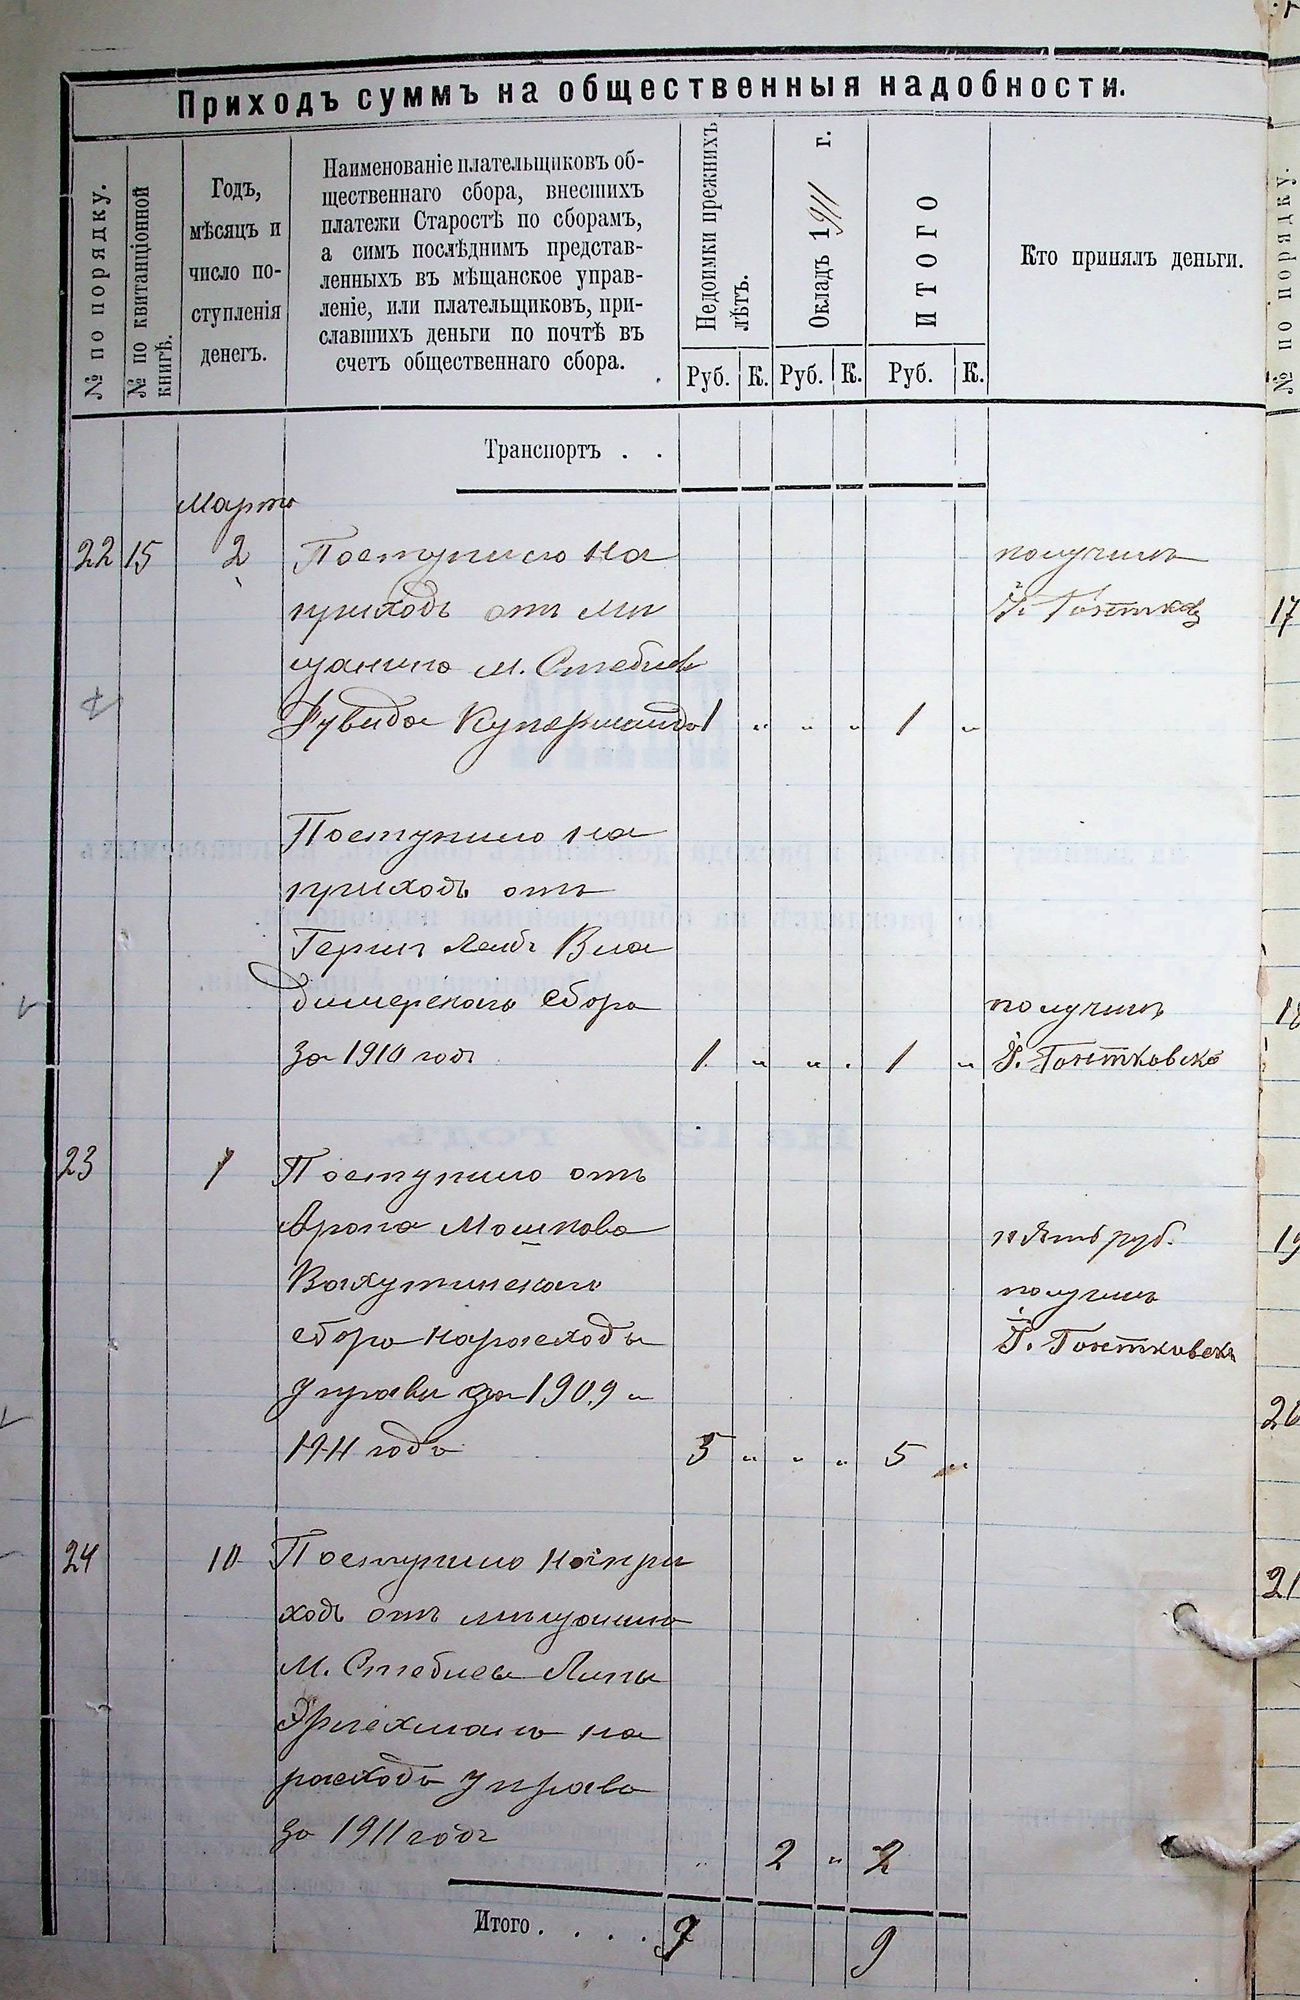 Приходъ суммъ на общественныя надобности.
№ по порядку.
№ по квитанціонной книгѣ.
Годъ,
мѣсяцъ и
число по-
ступленія
денегъ.
Наименованіе плательщиковъ об-
щественнаго сбора, внесшихъ
платежи Старостѣ по сборамъ,
а симъ послѣднимъ представ-
ленныхъ въ мѣщанское управ-
леніе, или плательщиковъ, при-
славшихъ деньги по почтѣ въ
счетъ общественнаго сбора.
Недоимки прежнихъ
лѣтъ.
Окладъ 1911 г.
ИТОГО
Кто принялъ деньги.
Руб. К. Руб. К. Руб. К.
Транспортъ . .
Марта
22 15 2 Поступило на получилъ
приходъ отъ мѣ
щанина м. Стеблев
Купермана 1 " " " 1 "
Поступило на
приходъ отъ
Лейб Вла
димерскаго сбора получилъ
за 1910 годъ 1 " " . 1 "
23 7 Поступило отъ
Арона Мошкова пять руб.
сбора на расходы получилъ
управы за 1909 и
1911 годъ 5 " " " 5 "
24 10 Поступило на при
ходъ отъ мѣщанина
м. Стеблева
на
расходъ управы
за 1911 годъ " 2 " 2
Итого . . . . 7 9
№ по порядку.
17
19
21